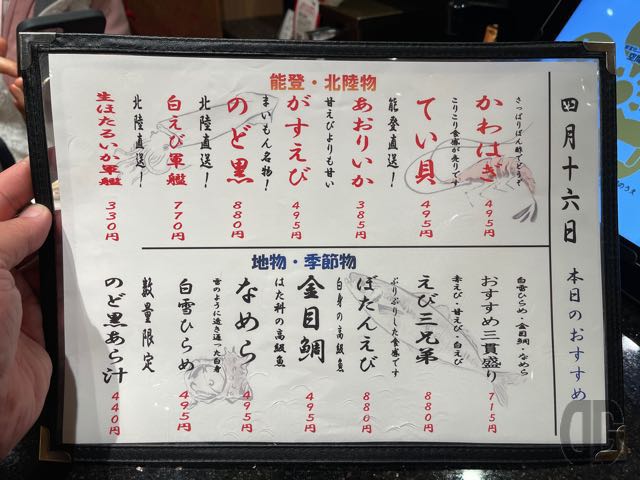 四月十六日 本日のおすすめ
能登・北陸物
さっぱりぽん酢でどうぞ
かわはぎ 495円
こりこり食感が売りです
てい貝 495円
能登直送！
あおりいか 385円
甘えびよりも甘い
がすえび 495円
まいもん名物！
のど黒 880円
北陸直送！
白えび軍艦 770円
北陸直送！
生ほたるいか軍艦 330円
地物・季節物
白雪ひらめ・金目鯛・なめら
おすすめ三貫盛り 715円
赤えび・甘えび・白えび
えび三兄弟 880円
ぷりぷりした食感です
ぼたんえび 880円
白身の高級魚
金目鯛 495円
はた科の高級魚
なめら 495円
雪のように透き通った白身
白雪ひらめ 495円
数量限定
のど黒あら汁 440円